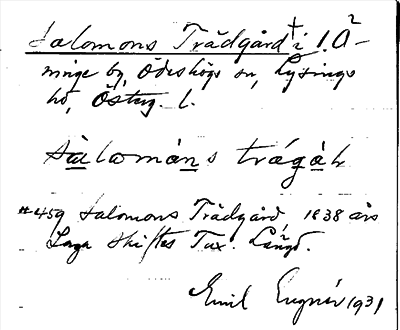 Salomons Trädgård † i l. Å-
minge by, Ödeshögs sn, Lysings
hd, Österg. l.
sàlománs trágàḷ
#459 Salomons Trädgård 1838 års
Laga Skiftes Tax. Längd.
Emil 1931